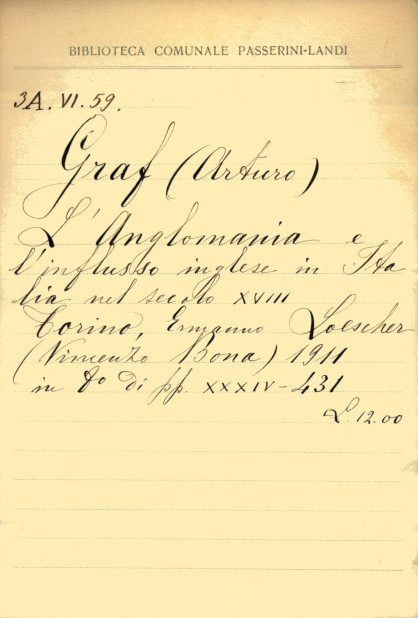 BIBLIOTECA COMUNALE PASSERINI-LANDI
3A. VI. 59.
Graf (Arturo)
L'Anglomania e
l'influsso inglese in Ita
lia nel secolo XVIII
Torino, Ermanno Loescher
(Vincenzo Bona) 1911
in 8º di pp. XXXIV-431
L. 12.00